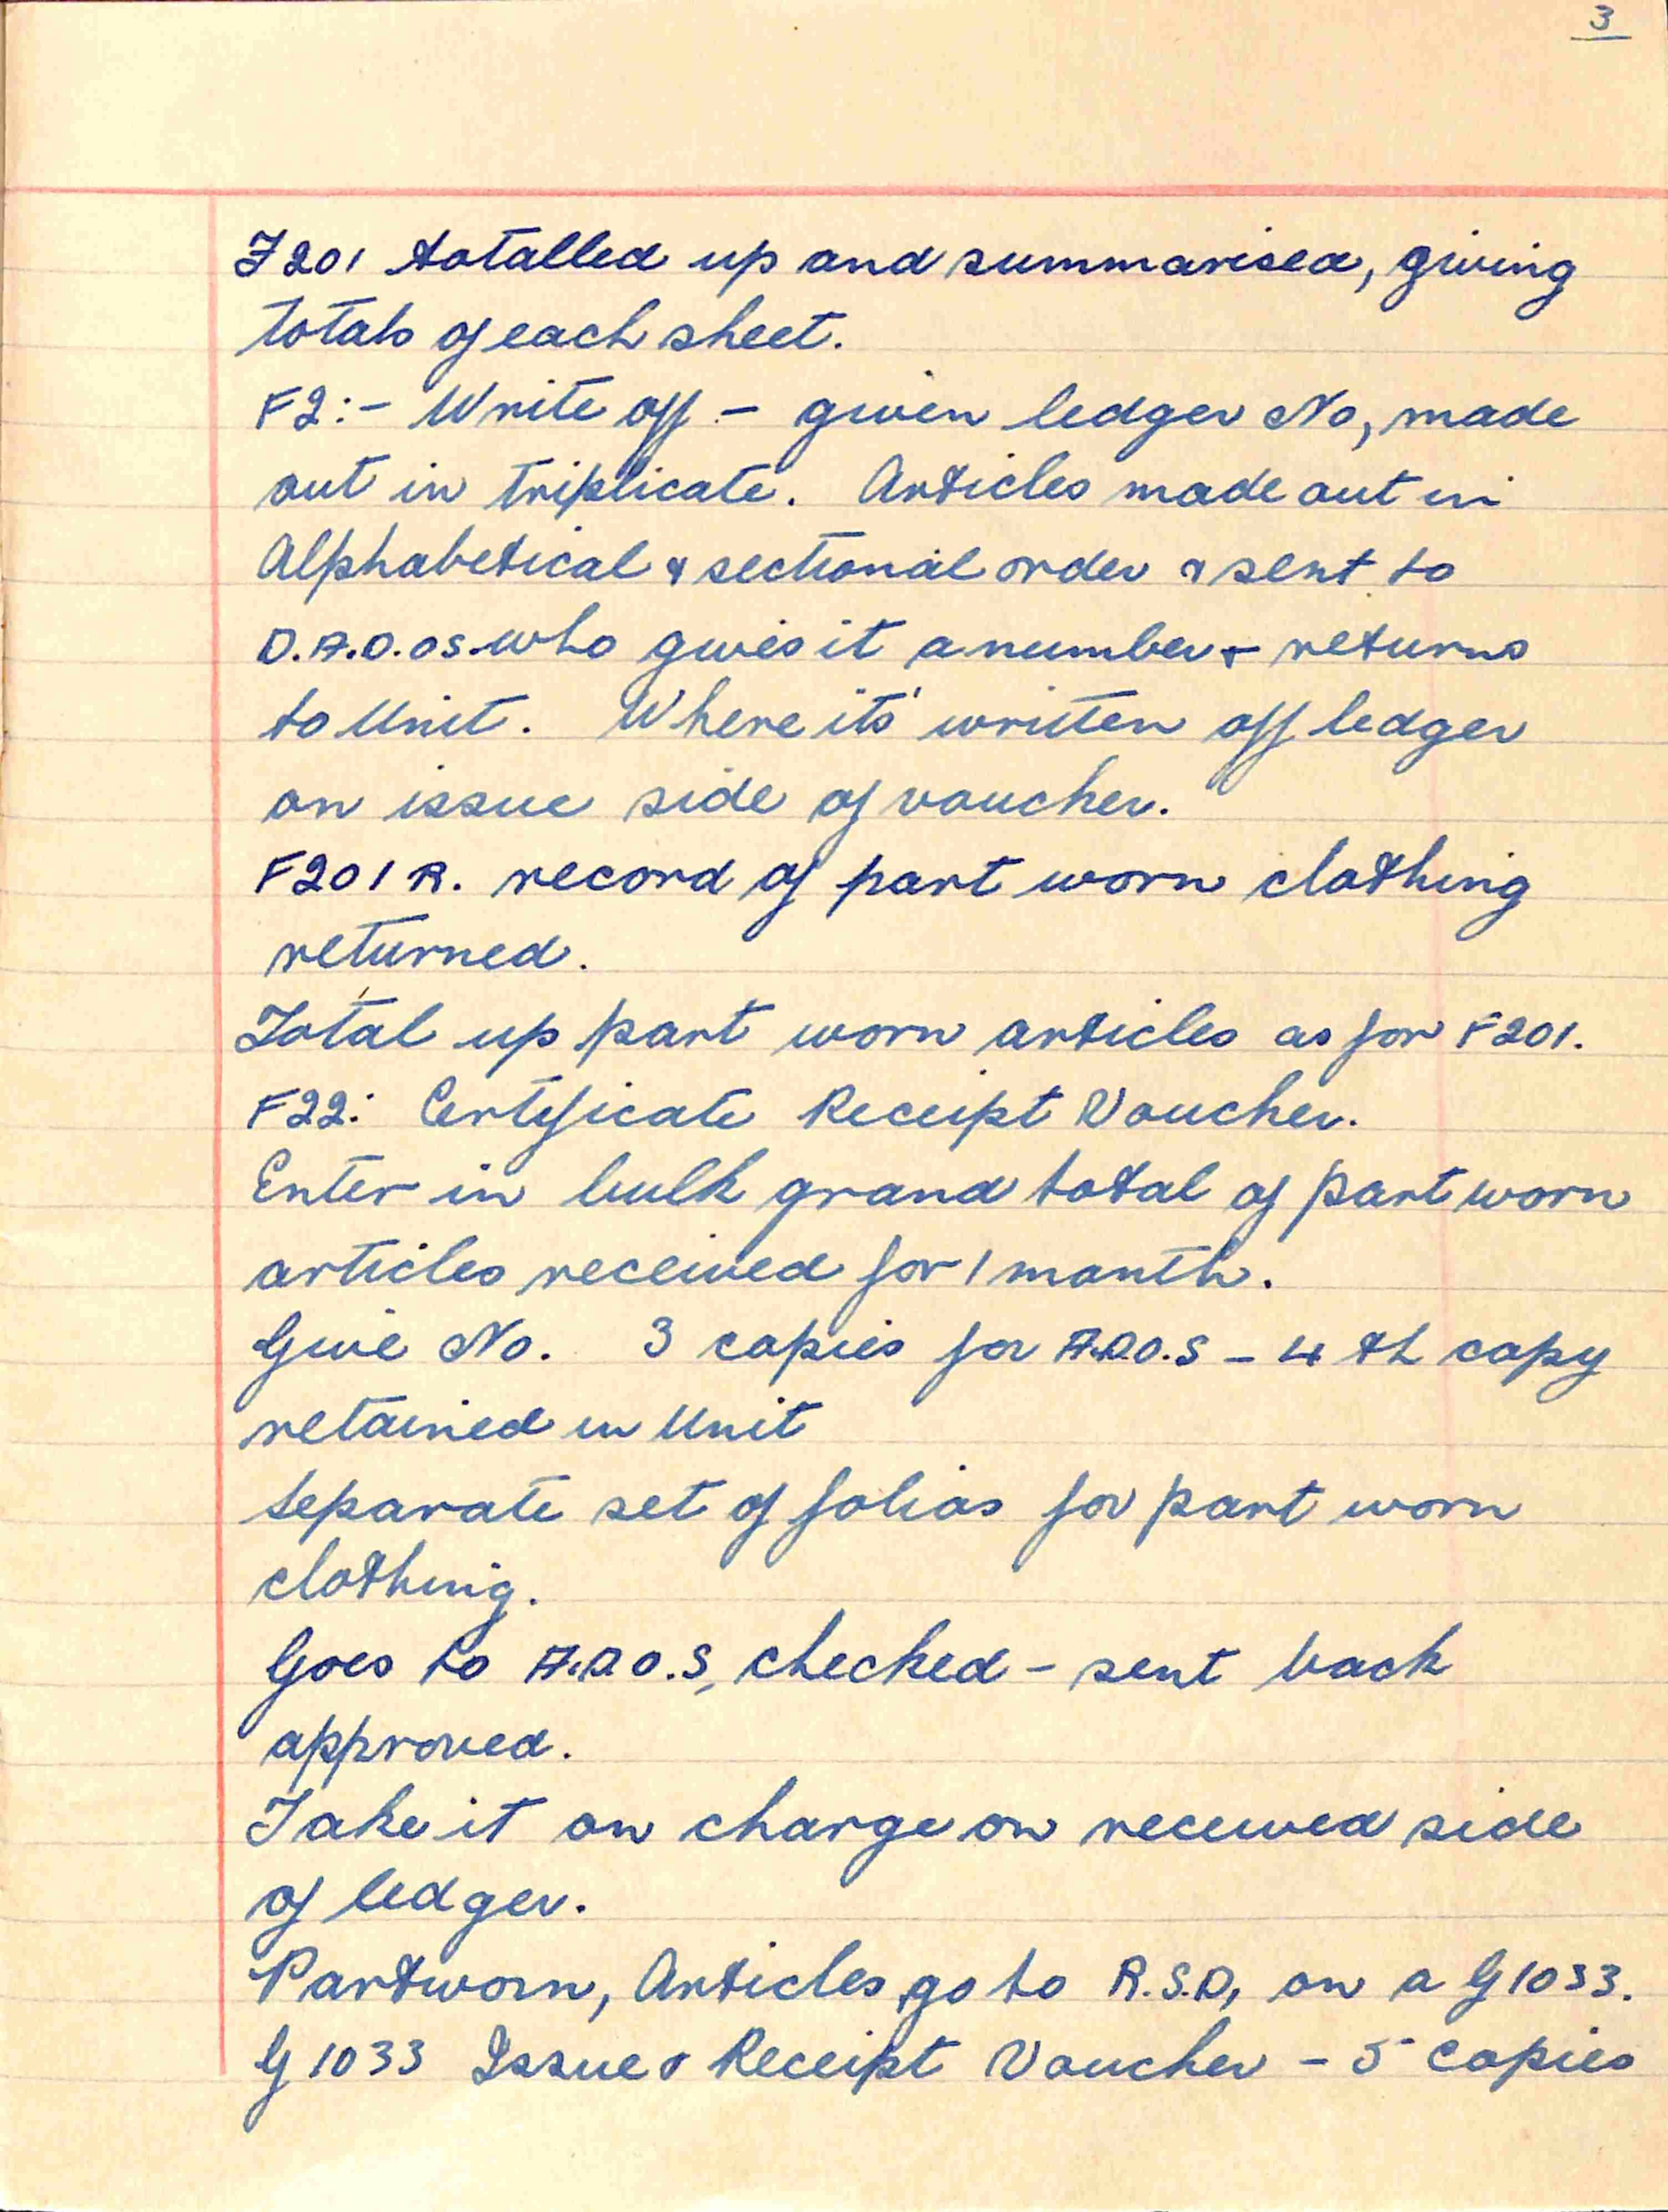 3
F201 totalled up and summarised, giving
totals of each sheet.
F2:- Write off - given ledger No, made
out in triplicate. Articles made out in
Alphabetical & sectional order & sent to
D.A.D.OS. who gives it a number & returns
to Unit. Where its' written off ledger
on issue side of voucher.
F201 R. record of part worn clothing
returned.
Total up part worn articles as for F201.
F22: Certificate Receipt Voucher.
Enter in bulk grand total of part worn
articles received for 1 month.
Give No. 3 copies for A.D.O.S - 4th copy
retained in Unit
Separate set of folios for part worn
clothing.
Goes to A.D.O.S, checked - sent back
approved.
Take it on charge on received side
of ledger.
Partworn, Articles go to R.S.D, on a G1033.
G1033 Issue & Receipt Voucher - 5 copies